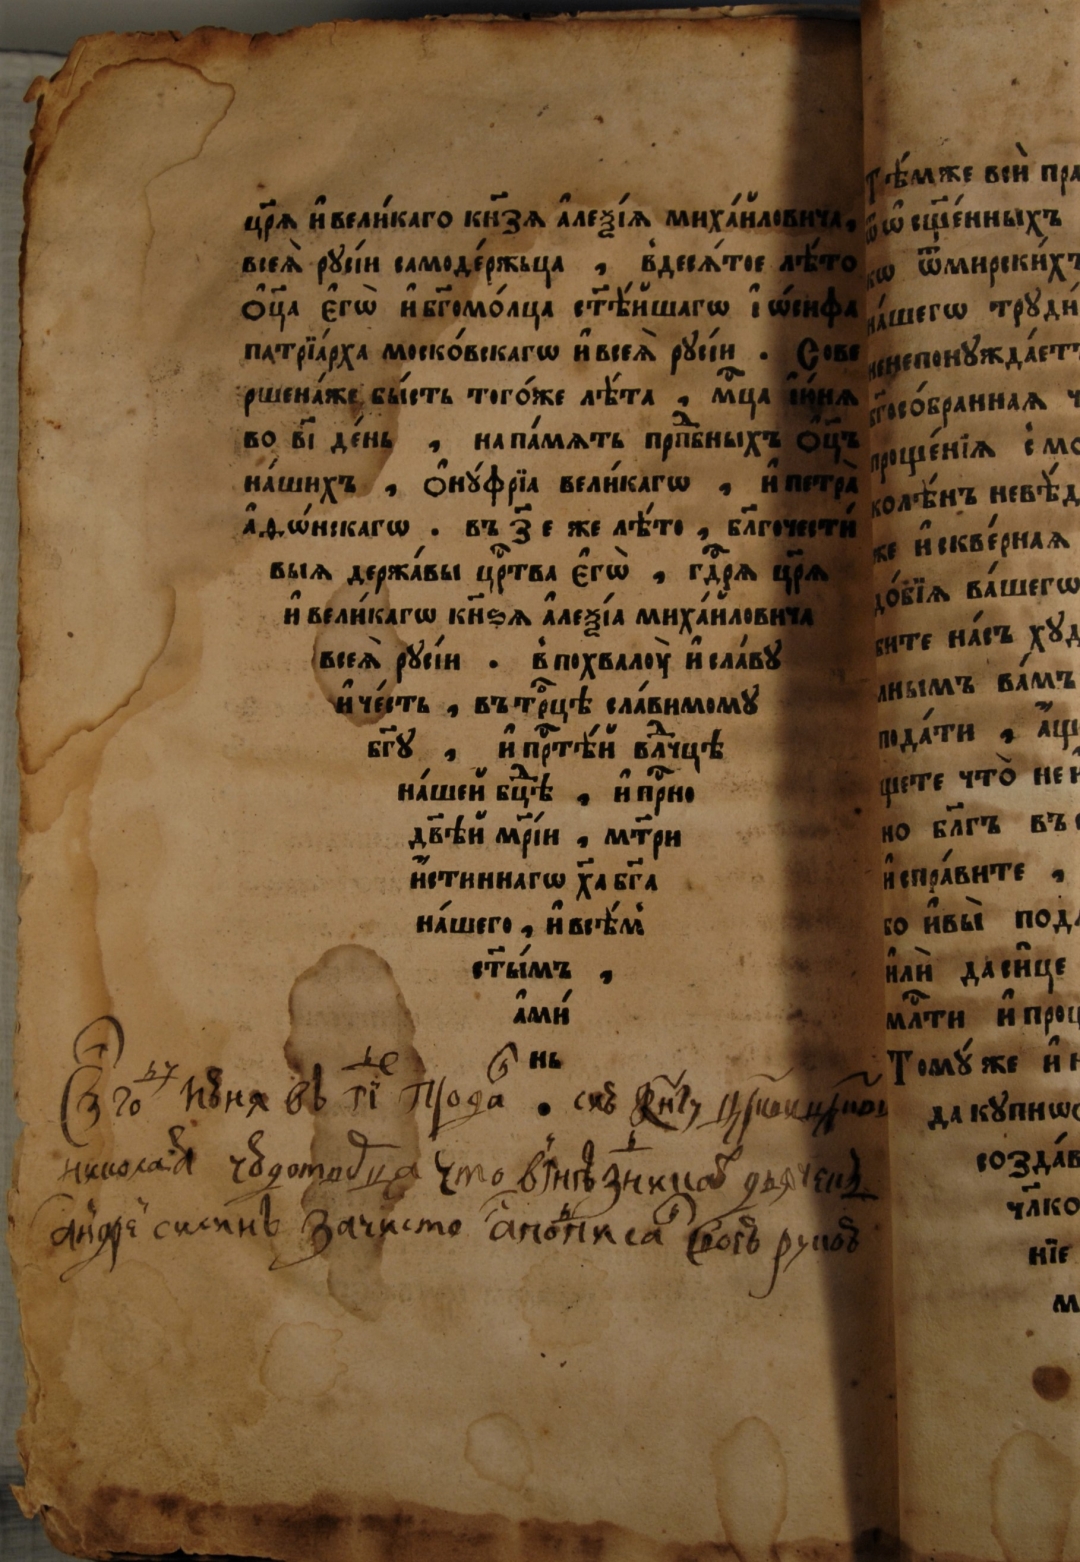 цр҃ѧ и҆ вели́каго кн҃зѧ а҆леѯі́ѧ миха́йловича,
всеѧ̀ русі́и самоде́ржьца , в десѧ́тое лѣ́то
ѻ҆ц҃а є҆гѡ̀ и҆ бг҃омо́лца ст҃ѣ́йшагѡ і҆ѡ́сифа
патрїа́рха моско́вскагѡ и҆ всеѧ̀ русі́и . Сове
ршена́же бы́сть того́же лѣ́та , мц҃а і҆и́нѧ
во в҃і де́нь , на па́мѧть прпⷣбныхъ ѻ҆ц҃ъ
на́шихъ , ѻ҆ну́фрїа вели́кагѡ , и҆ петра̀
а҆ѳѡ́нскагѡ . въ з҃ е же лѣ́то , блг҃очести́
выѧ держа́вы црⷭ҇тва є҆гѡ̀ , гдⷭ҇рѧ цр҃ѧ
и҆ вели́кагѡ кн҃ѕѧ а҆леѯі́а миха́йловича
всеѧ̀ русі́и . в похвалоу̀ и҆ сла́ву
и҆ че́сть , въ трⷪ҇цѣ сла́вимому
бг҃у , и҆ прⷭ҇тѣ́й влⷣчцѣ
на́шей бцⷣѣ , и҆ прⷭ҇но
дв҃ѣй мр҃і́и , мт҃ри
и҆́стиннагѡ хⷭ҇а бг҃а
на́шего , и҆ всѣ́м
ст҃ы́мъ ,
а҆ми́
нь
го июня въ гі продал сию книгу
николая чюдотворца что дьячек
андрей зачисто а подписал своею рукою
Тѣ́мже вси̑ пра
ѿ ѡ҆сщ҃е́нныхъ
кѡ ѿ мирски́хъ
на́шегѡ труди́
не понужда́етъ
бг҃осо́браннаѧ ч
проще́нїѧ і҆ мо
колѣ́нъ невѣ́д
же и҆ скве́рнаѧ
до́бїѧ ва́шегѡ
бите на́съ худ
лнымъ ва́мъ
пода́ти , а҆́щ
щете что̀ не и҆
но блг҃ъ въ с
и҆спра́вите ,
бо и҆ вы̀ под
и҆лѝ да си́це
млⷭ҇ти и҆ прощ
Тому́же и҆ н
да купнѡ
созда́в
чл҃ко
нїе
м